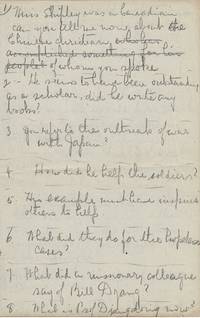 1) Miss Shipley was a Canadian
can you tell me more about the
Chinese
of whom you spoke
2 - He seems to have been outstanding
as a scholar, did he write any
books?
3 you refer to the outbreak of war
with Japan?
4 How did he help the soldiers?
5 His example must have inspired
others to help
6 What did they do for the hopeless
cases?
7 What did a missionary colleague
say of Bill Djang?
8 What is Prof Djang doing now?